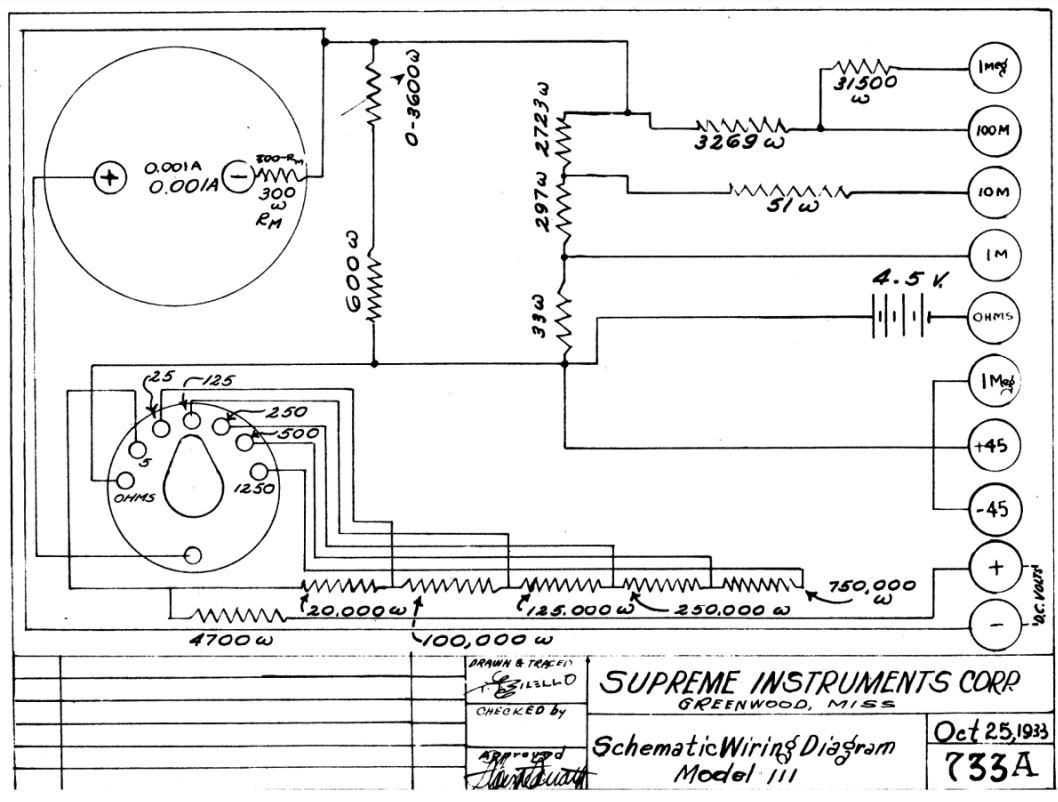 0-3600ω
1Meg
31500
ω
2723ω
100M
3269ω
+
0.001A
0.001A
-
300-RM
300
ω
RM
297ω
51ω
10M
1M
600ω
33ω
4.5 V.
OHMS
1Meg
25
125
250
500
5
OHMS
1250
+45
-45
+
D.C. VOLTS
-
20,000 ω
125,000 ω
250,000 ω
750,000
ω
4700 ω
100,000 ω
DRAWN & TRACED
CHECKED by
Approved
SUPREME INSTRUMENTS CORP.
GREENWOOD, MISS
Schematic Wiring Diagram
Model 111
Oct 25, 1933
733A